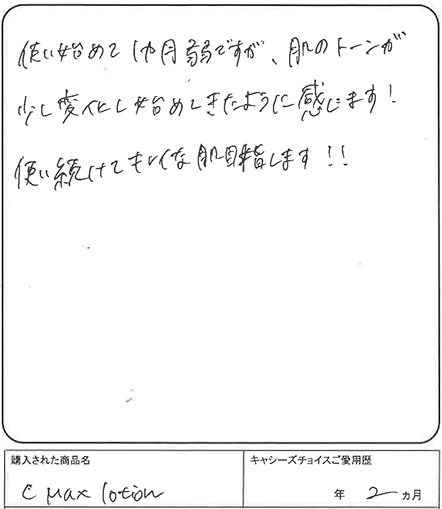 使い始めて1カ月弱ですが、肌のトーンが
少し変化し始めてきたように感じます!
使い続けてキレイな肌目指します!!
購入された商品名
キャシーズチョイスご愛用歴
C Max lotion
年 2 ヵ月